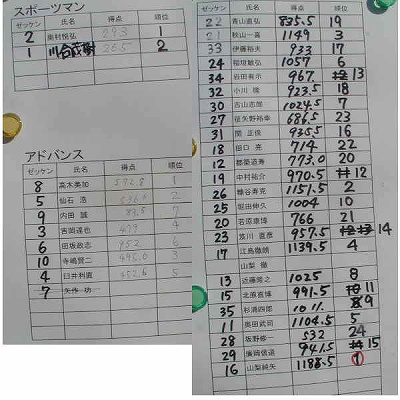 スポーツマン
ゼッケン 氏名 得点 順位
2 奥村悦弘 293 1
1 265 2
アドバンス
ゼッケン 氏名 得点 順位
8 高木美加 572.8 1
5 仙石 浩 2
9 内田 誠 7
3 吉岡達也 4
6 田坂政志 6
10 寺嶋賢二 3
4 臼井利直 5
7 矢作 功
ゼッケン 氏名 得点 順位
22 青山直弘 835.5 19
21 秋山一喜 1149 3
33 伊藤裕夫 933 17
24 稲垣敏弘 1057 6
34 岩田有示 967. 13
32 小川 隆 923.5 18
30 吉山志郎 1024.5 7
27 笹矢野裕幸 686.5 23
31 関 正俊 935.5 16
18 田口 亮 714 22
12 都築道寿 773.0 20
19 中村祐介 970.5 12
26 糠谷寿克 1151.5 2
25 堀田伸久 1004 10
20 若原康博 766 21
23 957.5 14
17 江島徹朗 1139.5 4
山梨 徹
13 近藤秀之 1025 8
15 北原直博 991.5 11
35 杉浦四郎 9
11 奥田武司 1104.5 5
28 坂野修一 532 24
29 廣岡信道 941.5 15
16 山梨純矢 1188.5 1